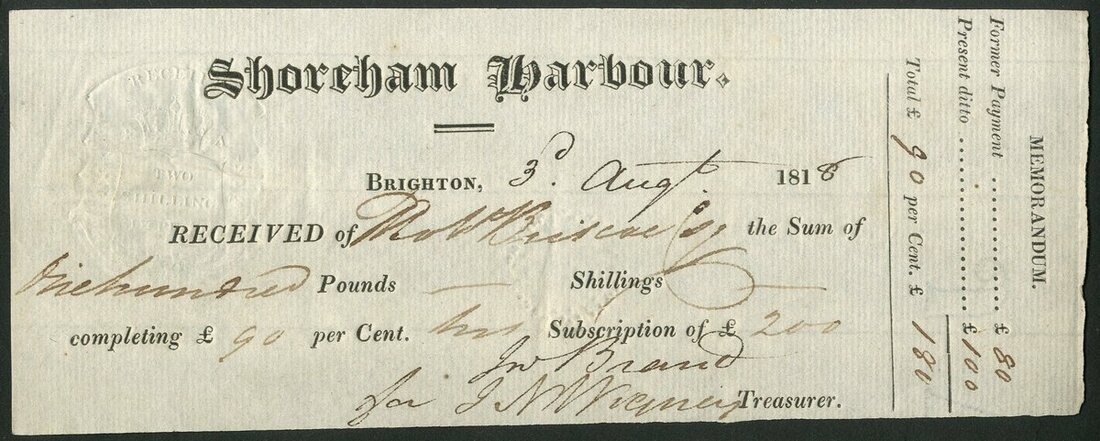 Shoreham Harbour.
BRIGHTON, 3d Augt. 1818
RECEIVED of Briscoe Esq the Sum of
Onehundred Pounds — Shillings —
completing £ 90 per Cent. his Subscription of £ 200
Jno Brand
for Treasurer.
RECEIPT
TWO
SHILLING
MEMORANDUM.
Former Payment ............ £ 80
Present ditto ............... £ 100
Total £ 90 per Cent. £ 180